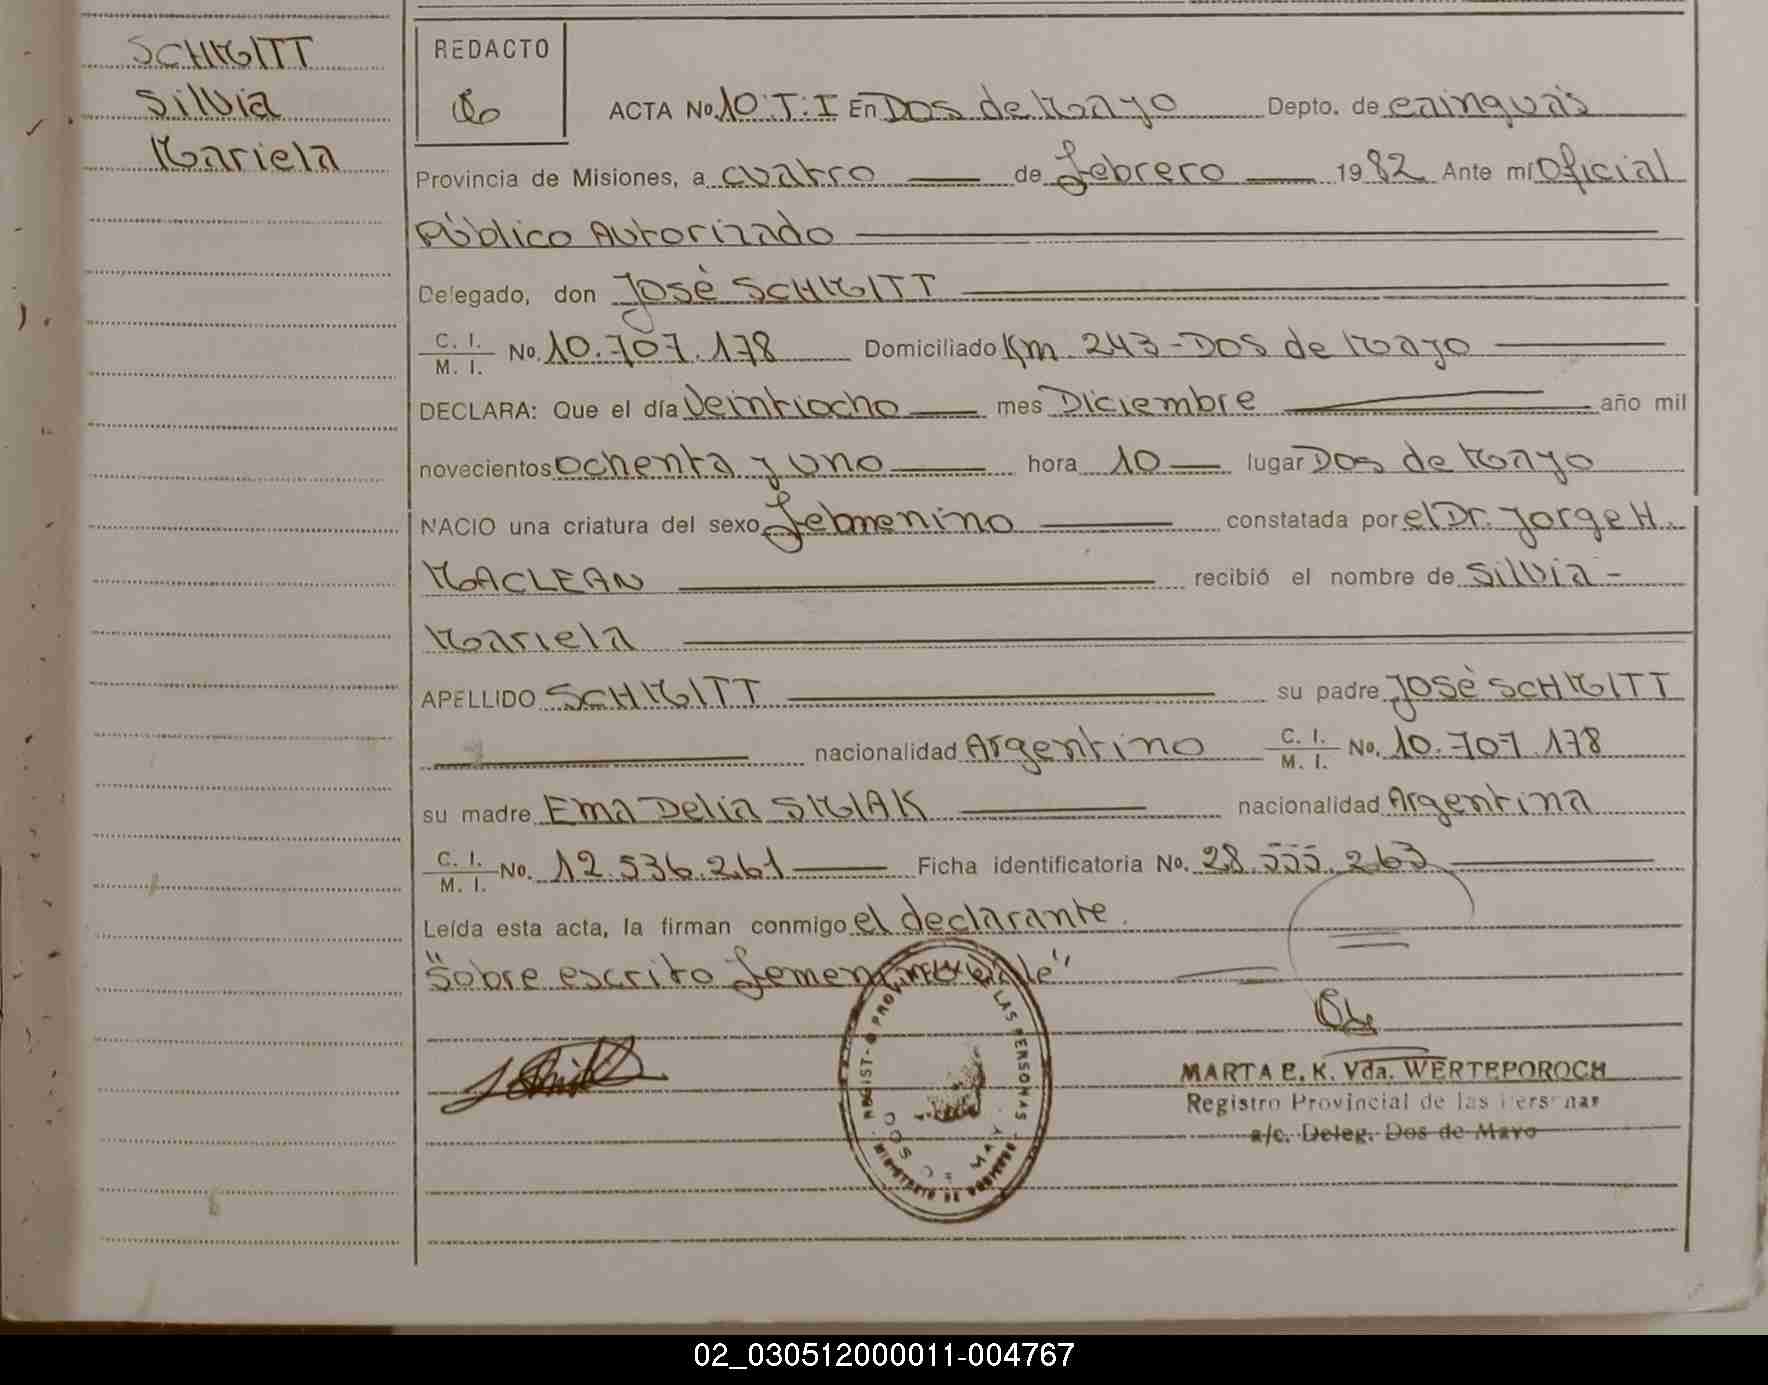 SCHMITT
Silvia
Mariela
REDACTO
ACTA No. 10:T:I En Dos de Mayo Depto. de Cainguás
Provincia de Misiones, a cuatro de febrero 1982 Ante mí Oficial
Público Autorizado
Delegado, don José SCHMITT
C. I.
M. I. No. 10.707.178 Domiciliado Km 243 - Dos de Mayo
DECLARA: Que el día Veintiocho mes Diciembre año mil
novecientos ochenta y uno hora 10 lugar Dos de Mayo
NACIO una criatura del sexo femenino constatada por el Dr. Jorge H.
MACLEAN recibió el nombre de Silvia -
Mariela
APELLIDO SCHMITT su padre José SCHMITT
nacionalidad Argentino C. I.
M. I. No. 10.707.178
su madre Ema Delia SMIAK nacionalidad Argentina
C. I.
M. I. No. 12.536.261 Ficha identificatoria No. 28.555.263
Leída esta acta, la firman conmigo el declarante.
"Sobre escrito femenino vale"
MARTA E. K. Vda. WERTEPOROCH
Registro Provincial de las Personas
a/c. Deleg. Dos de Mayo
02_030512000011-004767